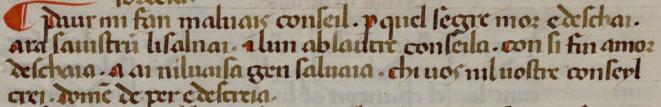 Paur mi fan maluais conseil. ꝑ quel segre mor e deschai.
ara sauistru lisalnai. a lun ab lautre conseila. con si fin amor
deschaia. a ai niluaisa gen saluaia. chi uos nil uostre conseyl
crei. domẽ de per e descreia.